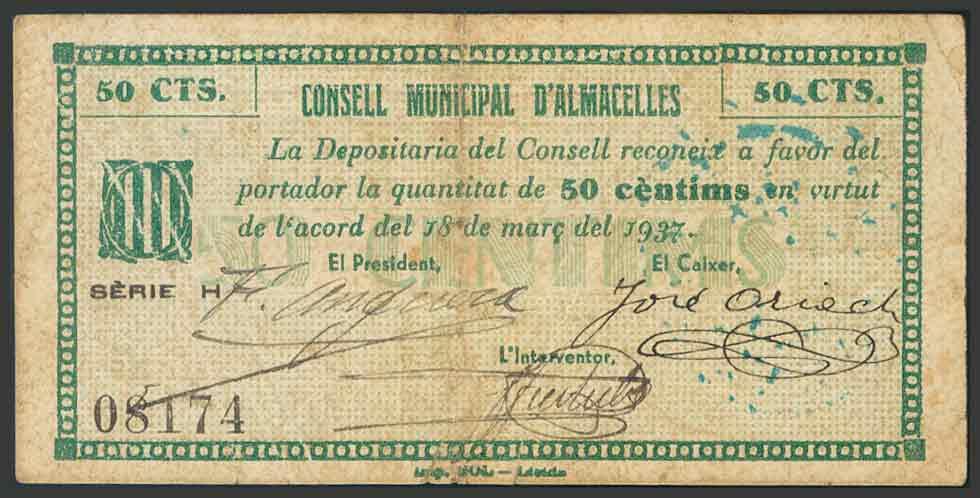 50 CTS.
CONSELL MUNICIPAL D'ALMACELLES
50 CTS.
La Depositaria del Consell reconeix a favor del
portador la quantitat de 50 cèntims en virtut
de l'acord del 18 de març del 1937.
50 CENTIMS
El President,
El Caixer,
SÈRIE H
F.
José
L'Interventor,
08174
Imp. — Lleida